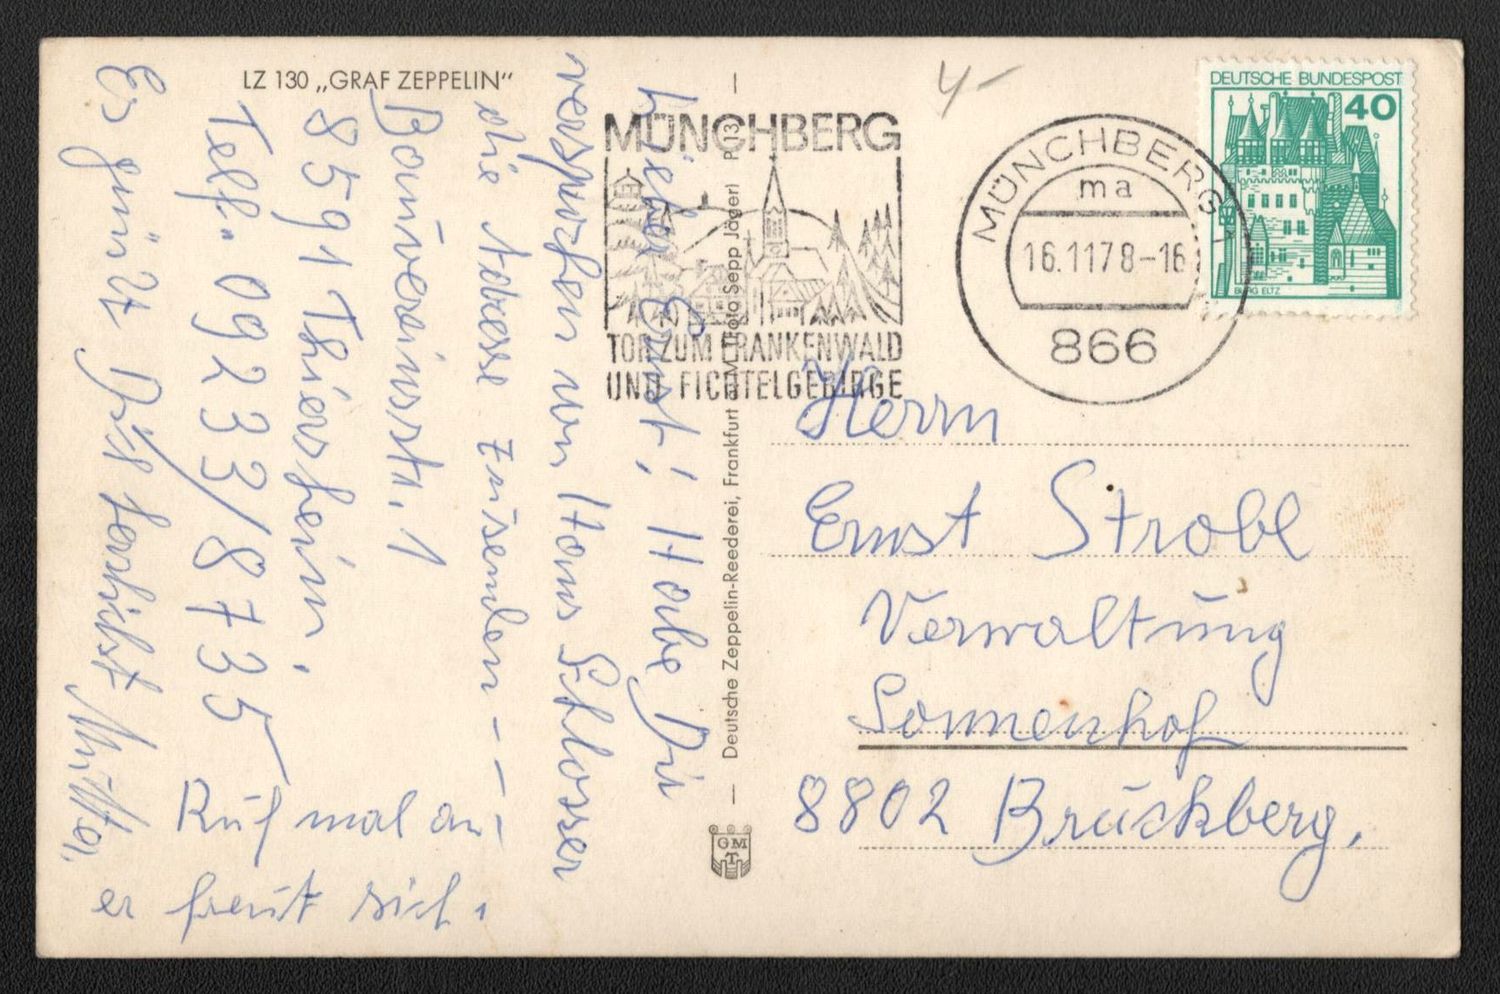 LZ 130 „GRAF ZEPPELIN“
Lieber Ernst! Habe Dir
versprochen von Hans Schlosser
die Adresse zusenden - - -
Bauvereinsstr. 1
8591 Thiersheim.
Telf. 09233/8735
Ruf mal an -
er freut sich.
Es grüßt Dich herzlichst Mutter,
Deutsche Zeppelin-Reederei, Frankfurt a. M. Foto Sepp Jägerl P 13
GMT
4-
MÜNCHBERG
TOR ZUM FRANKENWALD
UND FICHTELGEBIRGE
MÜNCHBERG 1
ma
16.11 78-16
866
DEUTSCHE BUNDESPOST
40
BURG ELTZ
Herrn
Ernst Strobl
Verwaltung
Sonnenhof
8802 Bruckberg.